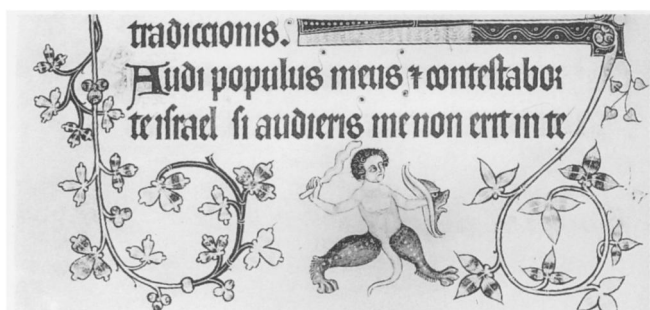 tradiccionis.
Audi populus meus ⁊ contestabor
te israel si audieris me non erit in te